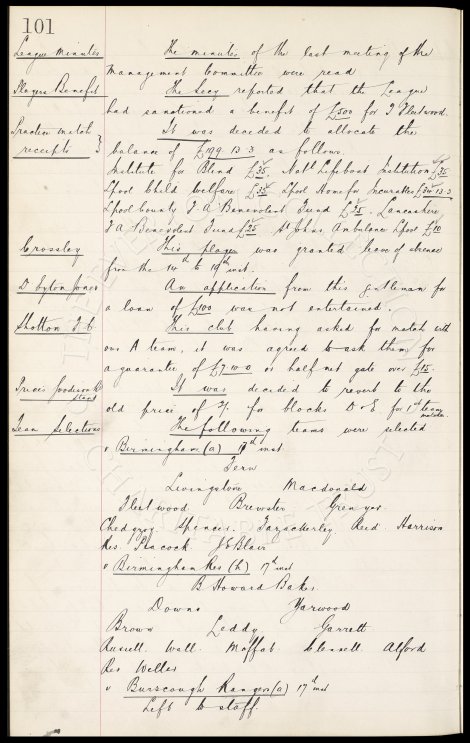 101
League Minutes
The minutes of the last meeting of the
Management Committee were read
Players Benefit
The Secy reported that the League
had sanctioned a benefit of £500 for J Fleetwood.
Practice match
receipts }
It was decided to allocate the
balance of £199.13.3 as follows.
Institute for Blind £35. Natl Lifeboat Institution £35
Lpool Child Welfare £35 Lpool Home for Incurables £ 13.3
Lpool County F.A. Benevolent Fund £25. Lancashire
F.A. Benevolent Fund £25 St Johns Ambulance Lpool £10
Crossley
This player was granted leave of absence
from the 14th to 19th inst.
D Syton Jones
An application from this gentleman for
a loan of £100 was not entertained.
Shotton F.C.
This club having asked for match with
our A team, it was agreed to ask them for
a guarantee of £7.10.0 or half net gate over £15.
Prices Goodison Rd
Stand
It was decided to revert to the
old price of 3/. for blocks D & E for 1st team
matches
Team Selections
The following teams were selected
v Birmingham (a) 17th inst
Fern
Livingstone Macdonald
Fleetwood Brewster Grenyer
Chedgzoy. Spencer. Fazackerley. Reid. Harrison
Res. Peacock J E Blair
v Birmingham Res (h) 17th inst
B Howard Baker
Downs Yarwood
Brown Leddy Garrett
Russell Wall Moffat Clennell Alford
Res Weller
v Burscough Rangers (a) 17th inst
Left to staff.